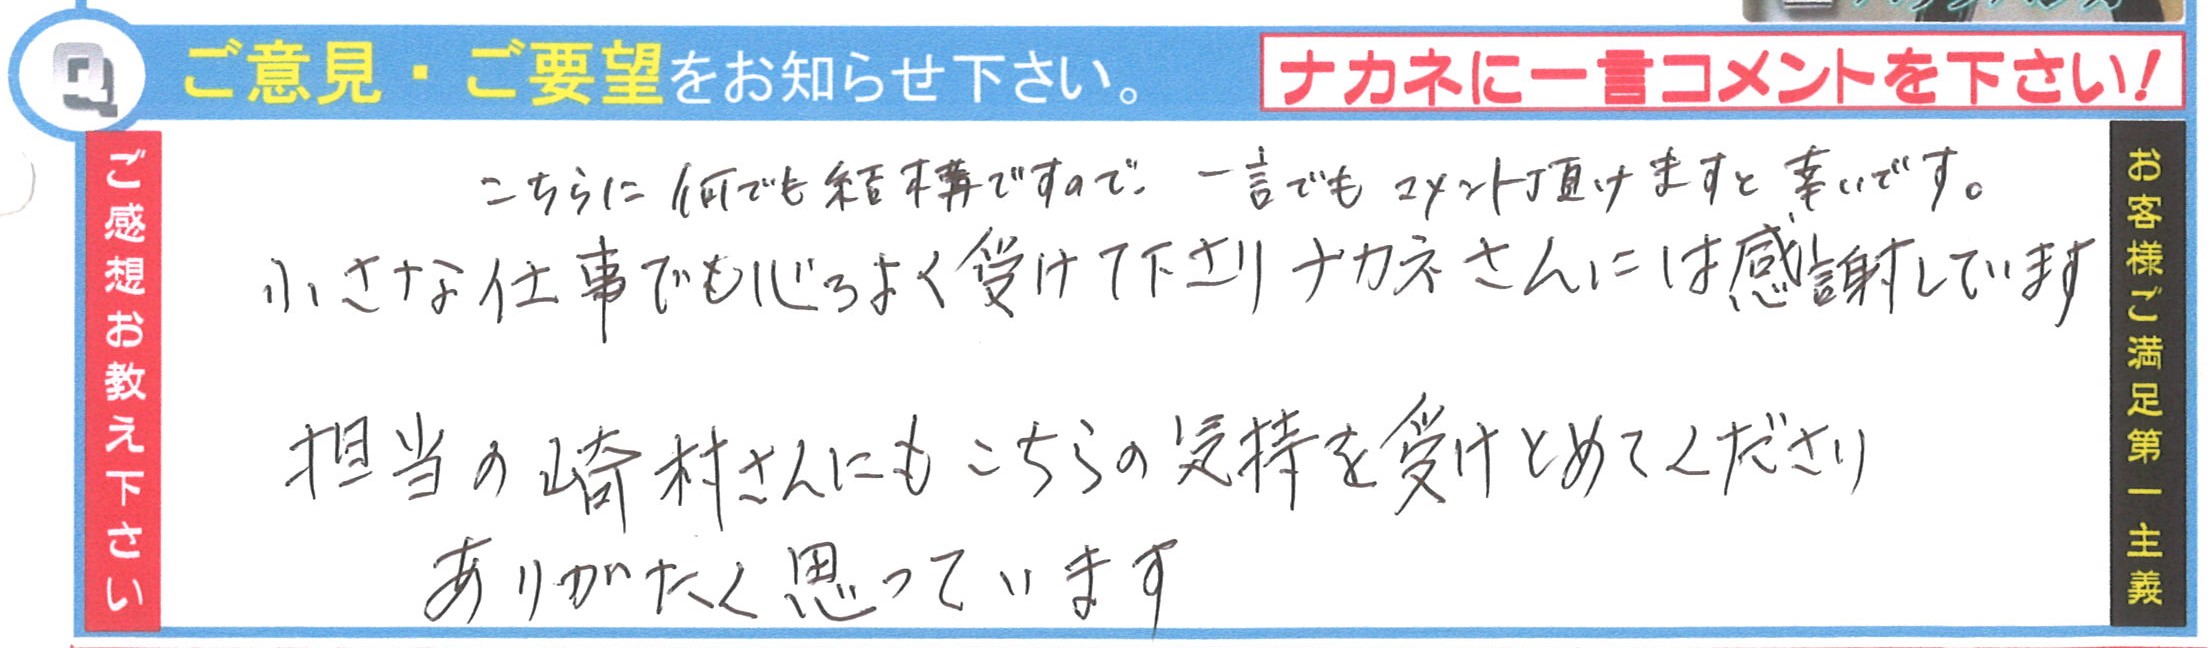 Q ご意見・ご要望をお知らせ下さい。
ナカネに一言コメントを下さい!
ご感想お教え下さい
こちらに何でも結構ですので、一言でもコメント頂けますと幸いです。
小さな仕事でも心よく受けて下さりナカネさんには感謝しています
担当の崎村さんにもこちらの気持を受けとめてくださり
ありがたく思っています
お客様ご満足第一主義